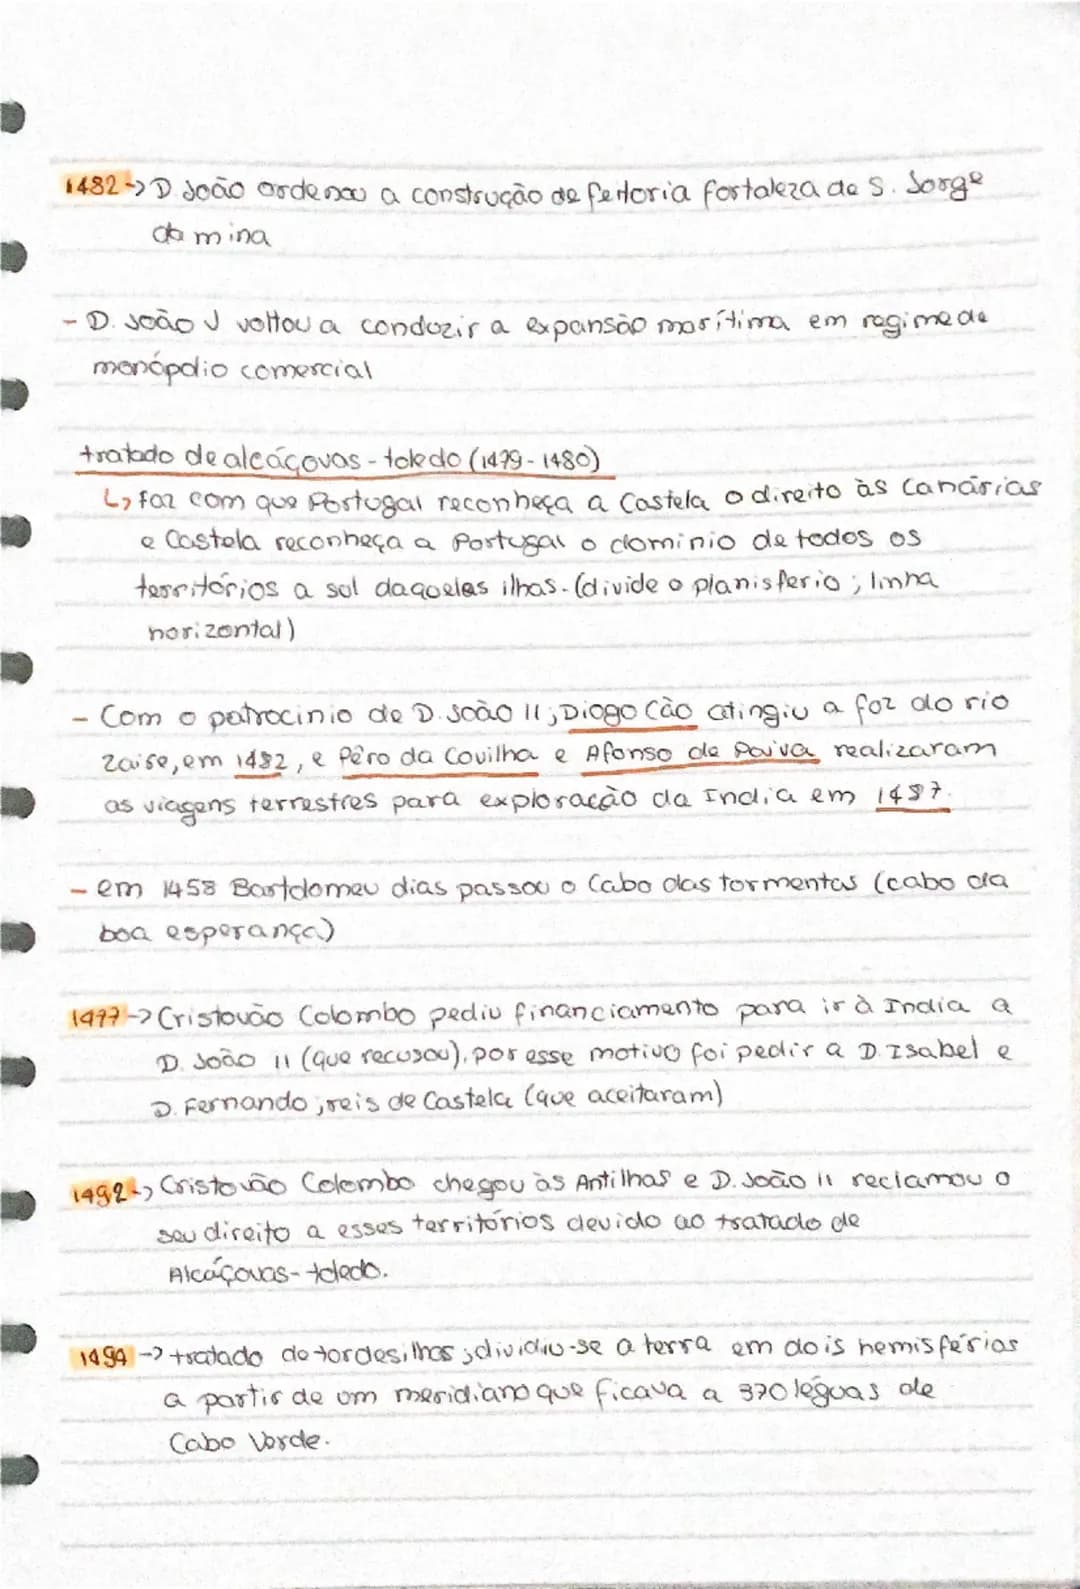 1482 -> D. João ordenou a construção de feitoria fortaleza de S. Jorge
da mina
- D. João J voltou a conduzir a expansão marítima em regime de
monópolio comercial
tratado de alcáçovas - toledo (1479 - 1480)
↳ faz com que Portugal reconheça a Castela o direito às Canárias
e Castela reconheça a Portugal o dominio de todos os
territórios a sul daquelas ilhas. (divide o planisferio ; linha
horizontal)
- Com o patrocinio de D. João II, Diogo Cão atingiu a foz do rio
Zaire, em 1482, e Pêro da Covilha e Afonso de Paiva realizaram
as viagens terrestres para exploração da India em 1487.
- em 1458 Bartolomeu dias passou o Cabo das tormentas (cabo da
boa esperança)
1477 -> Cristovão Colombo pediu financiamento para ir à India a
D. João II (que recusou), por esse motivo foi pedir a D. Isabel e
D. Fernando, reis de Castela (que aceitaram)
1492 -> Cristovão Colombo chegou às Antilhas e D. João II reclamou o
seu direito a esses territórios devido ao tratado de
Alcáçovas - toledo.
1494 -> tratado de tordesilhas ; dividiu-se a terra em dois hemisférios
a partir de um meridiano que ficava a 370 léguas de
Cabo Verde.